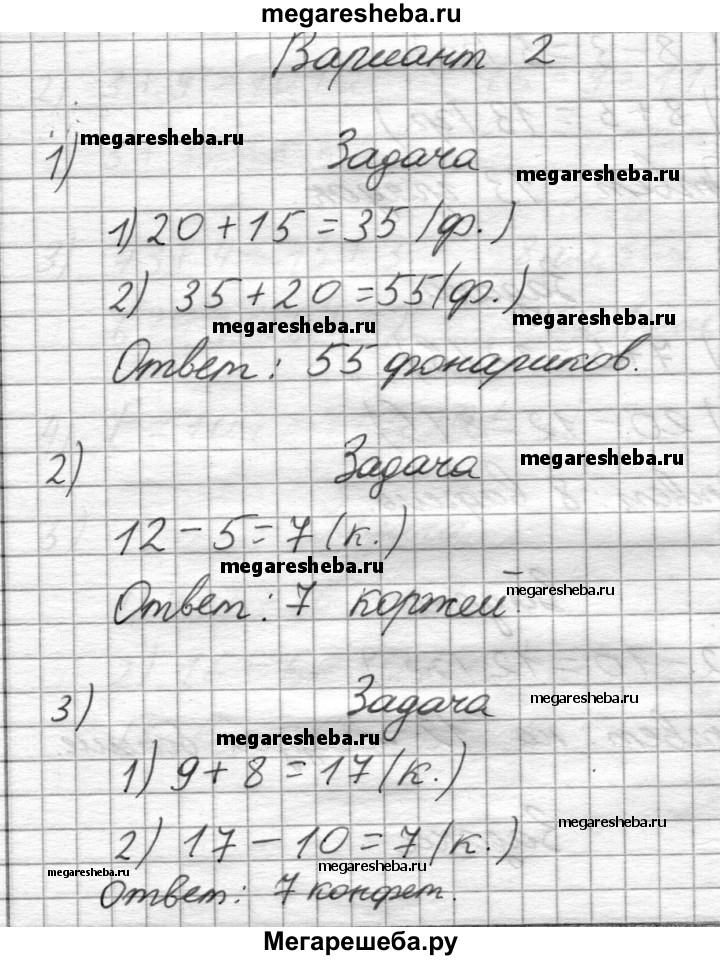 megaresheba.ru
Вариант 2
megaresheba.ru
1) Задача
megaresheba.ru
1) 20 + 15 = 35 (ф.)
2) 35 + 20 = 55 (ф.)
megaresheba.ru
megaresheba.ru
Ответ: 55 фонариков.
2) Задача
megaresheba.ru
12 - 5 = 7 (к.)
megaresheba.ru
Ответ: 7 коржей.
megaresheba.ru
3) Задача
megaresheba.ru
megaresheba.ru
1) 9 + 8 = 17 (к.)
megaresheba.ru
2) 17 - 10 = 7 (к.)
megaresheba.ru
megaresheba.ru
Ответ: 7 конфет.
Мегарешеба.ру